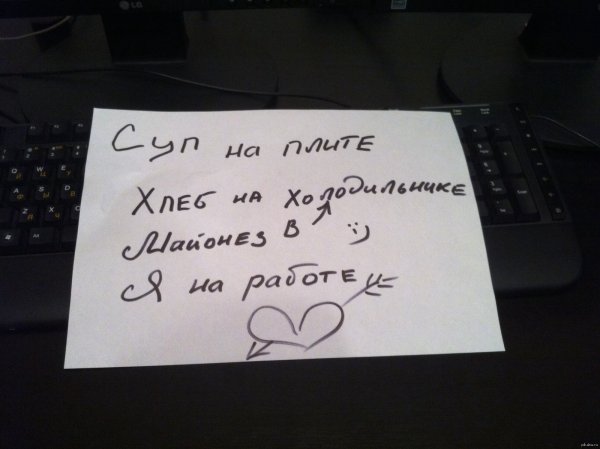 LG
Суп на плите
Хлеб на холодильнике
Майонез в ↗ :)
Я на работе
pikabu.ru